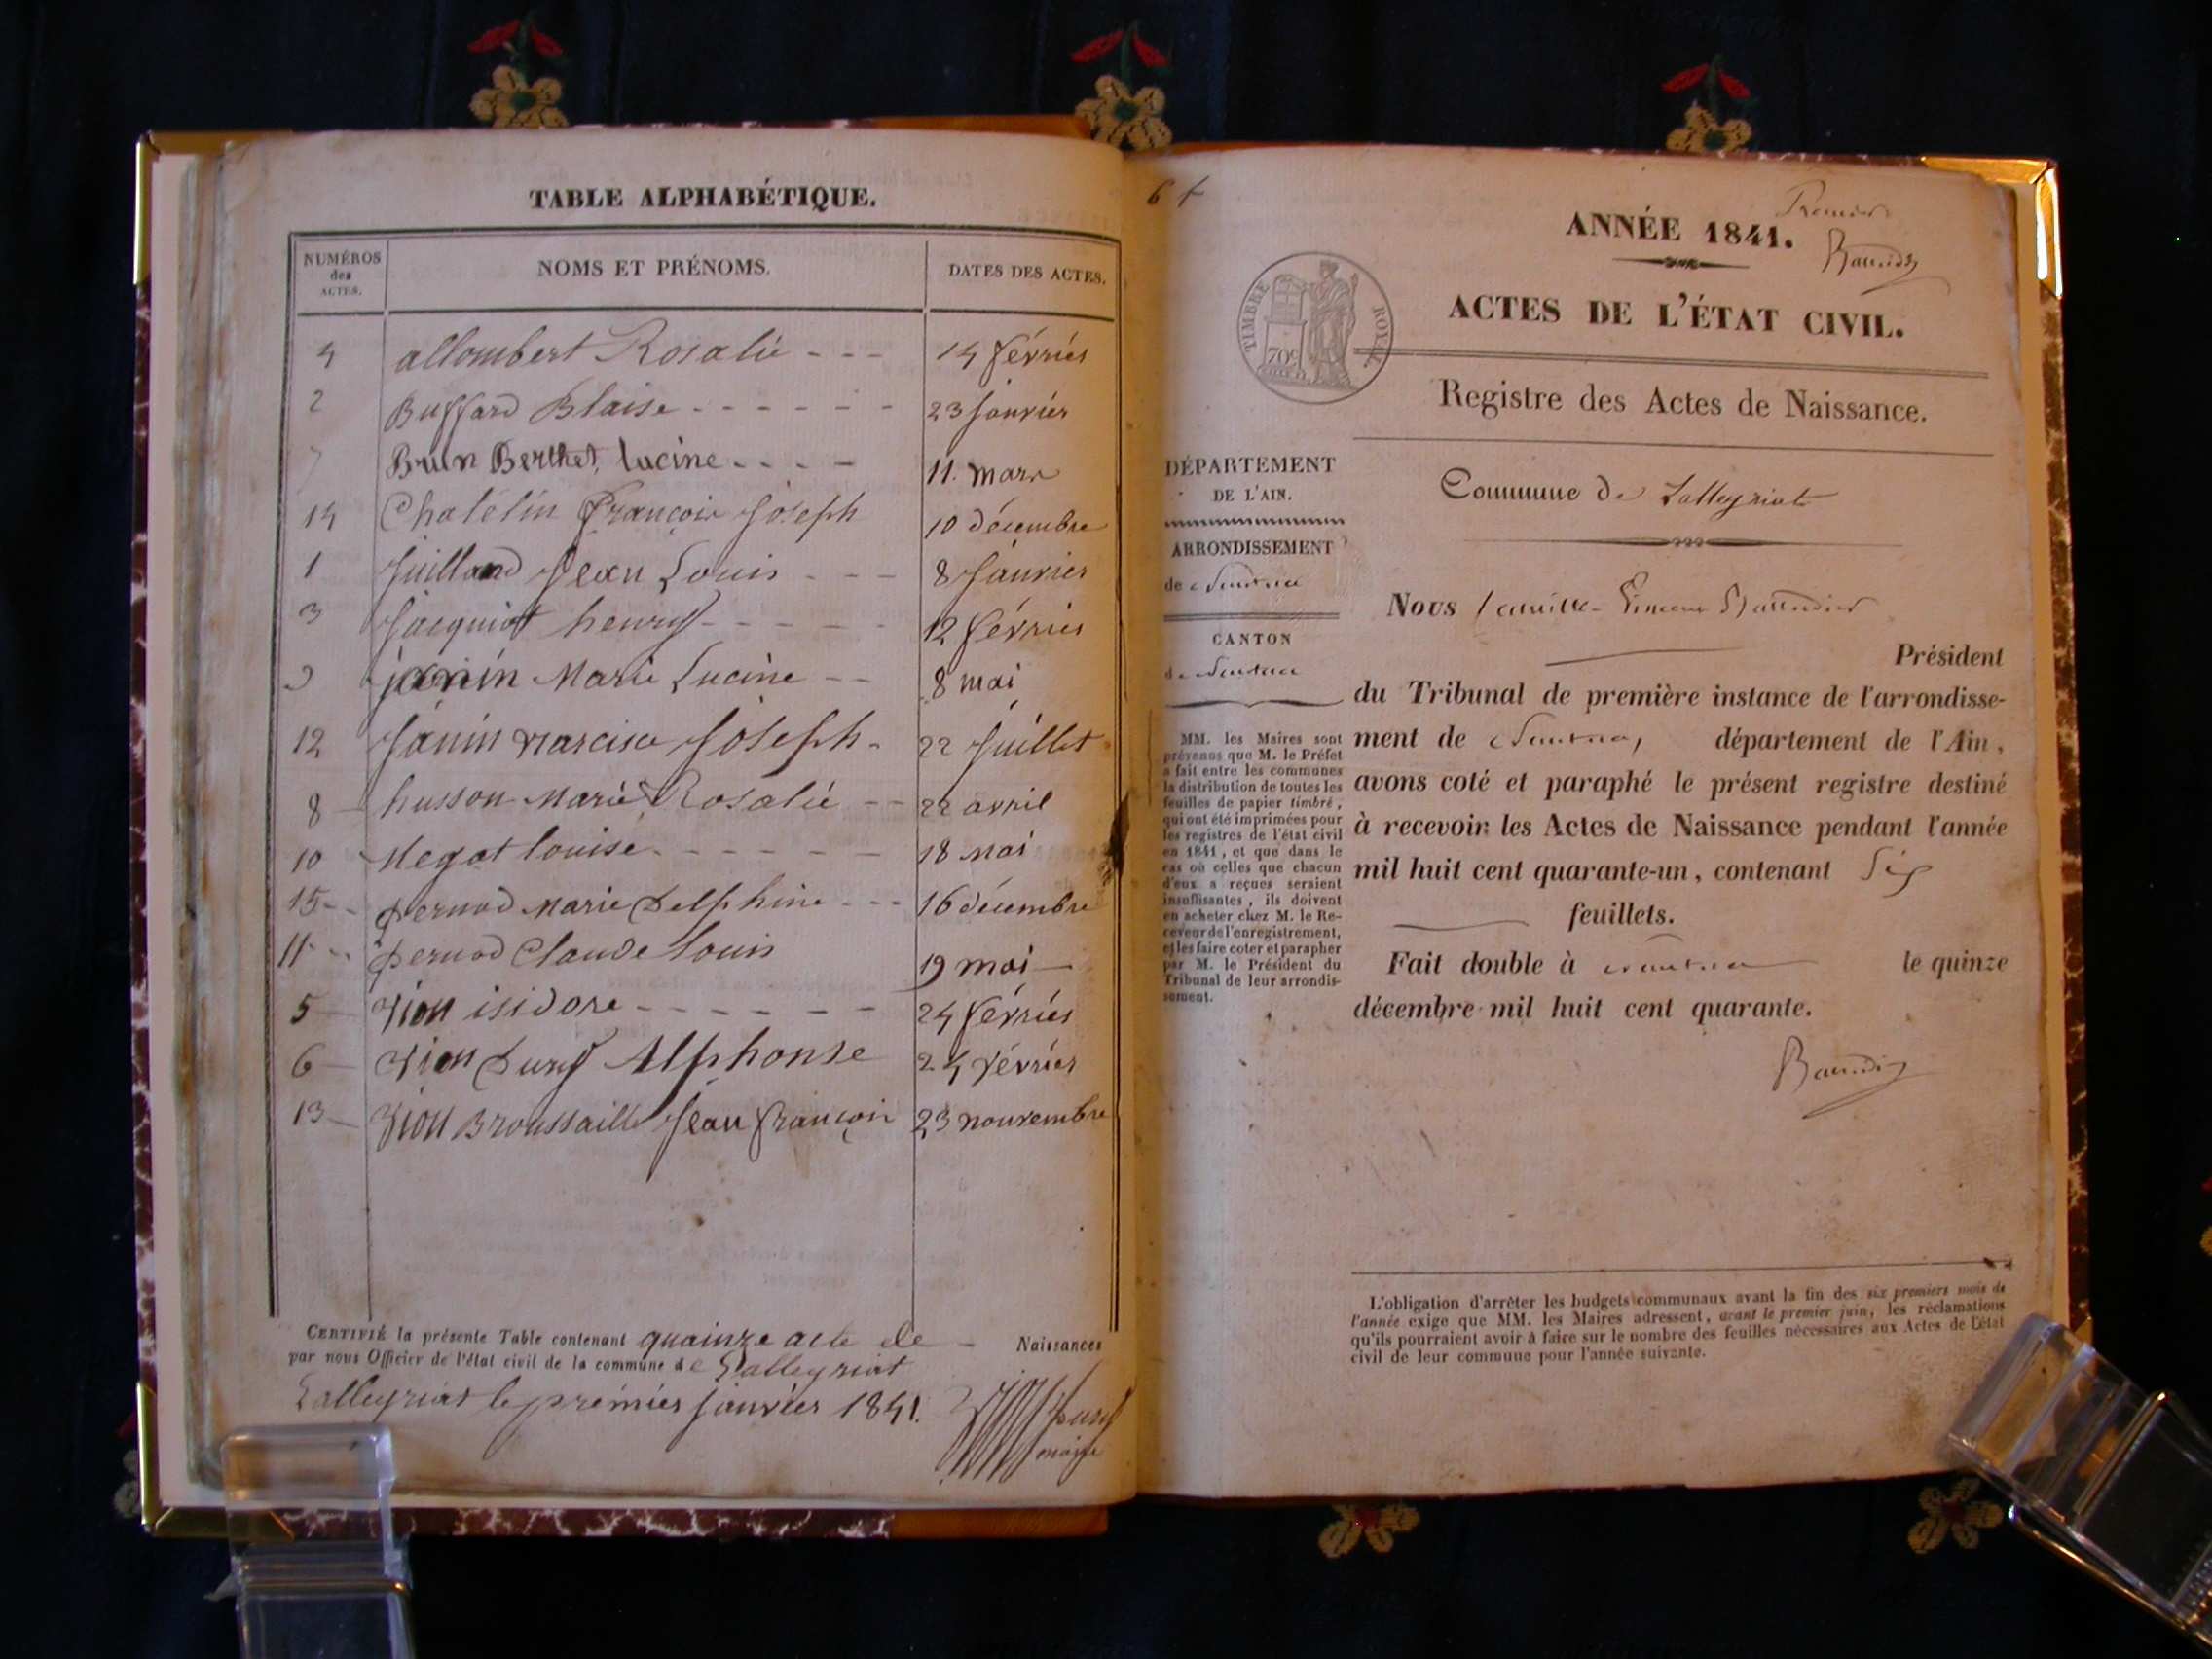 TABLE ALPHABÉTIQUE.
NUMÉROS
des
ACTES.
NOMS ET PRÉNOMS.
DATES DES ACTES.
4 allombert Rosalie - - - 14 février
2 Buffard Blaise - - - - - - 23 janvier
7 Brun Berthet, lucine - - - - 11. mars
14 Chatelin françois Joseph 10 décembre
1 Juilland Jean Louis - - - 8 Janvier
3 Jacquiot henry - - - - - 12 février
9 janin Marie Lucine - - 8 mai
12 Janin narcisse Joseph - 22 Juillet
8 husson Marie Rosalie - - 22 avril
10 Megat louise - - - - - - 18 mai
15 - - pernod Marie Delphine - - - 16 décembre
11 - - pernod Claude Louis 19 mai
5 vion isidore - - - - - - 24 février
6 vion Dury Alphonse 24 février
13 vion Broussaille Jean françois 23 nouvembre
CERTIFIÉ la présente Table contenant quainze acte de Naissances
par nous Officier de l'état civil de la commune de Lalleyriat
Lalleyriat le premier janvier 1841.
maire
6 f
Premier
ANNÉE 1841.
TIMBRE ROYAL
70c
ACTES DE L'ÉTAT CIVIL.
Registre des Actes de Naissance.
DÉPARTEMENT
DE L'AIN.
ARRONDISSEMENT
de Nantua
CANTON
de Nantua
MM. les Maires sont
prévenus que M. le Préfet
a fait entre les communes
la distribution de toutes les
feuilles de papier timbré,
qui ont été imprimées pour
les registres de l'état civil
en 1841, et que dans le
cas où celles que chacun
d'eux a reçues seraient
insuffisantes, ils doivent
en acheter chez M. le Re-
ceveur de l'enregistrement,
et les faire coter et parapher
par M. le Président du
Tribunal de leur arrondis-
sement.
Commune de Lalleyriat
Nous
Président
du Tribunal de première instance de l'arrondisse-
ment de Nantua, département de l'Ain,
avons coté et paraphé le présent registre destiné
à recevoir les Actes de Naissance pendant l'année
mil huit cent quarante-un, contenant Six
feuillets.
Fait double à Nantua le quinze
décembre mil huit cent quarante.
L'obligation d'arrêter les budgets communaux avant la fin des six premiers mois de
l'année exige que MM. les Maires adressent, avant le premier juin, les réclamations
qu'ils pourraient avoir à faire sur le nombre des feuilles nécessaires aux Actes de l'état
civil de leur commune pour l'année suivante.